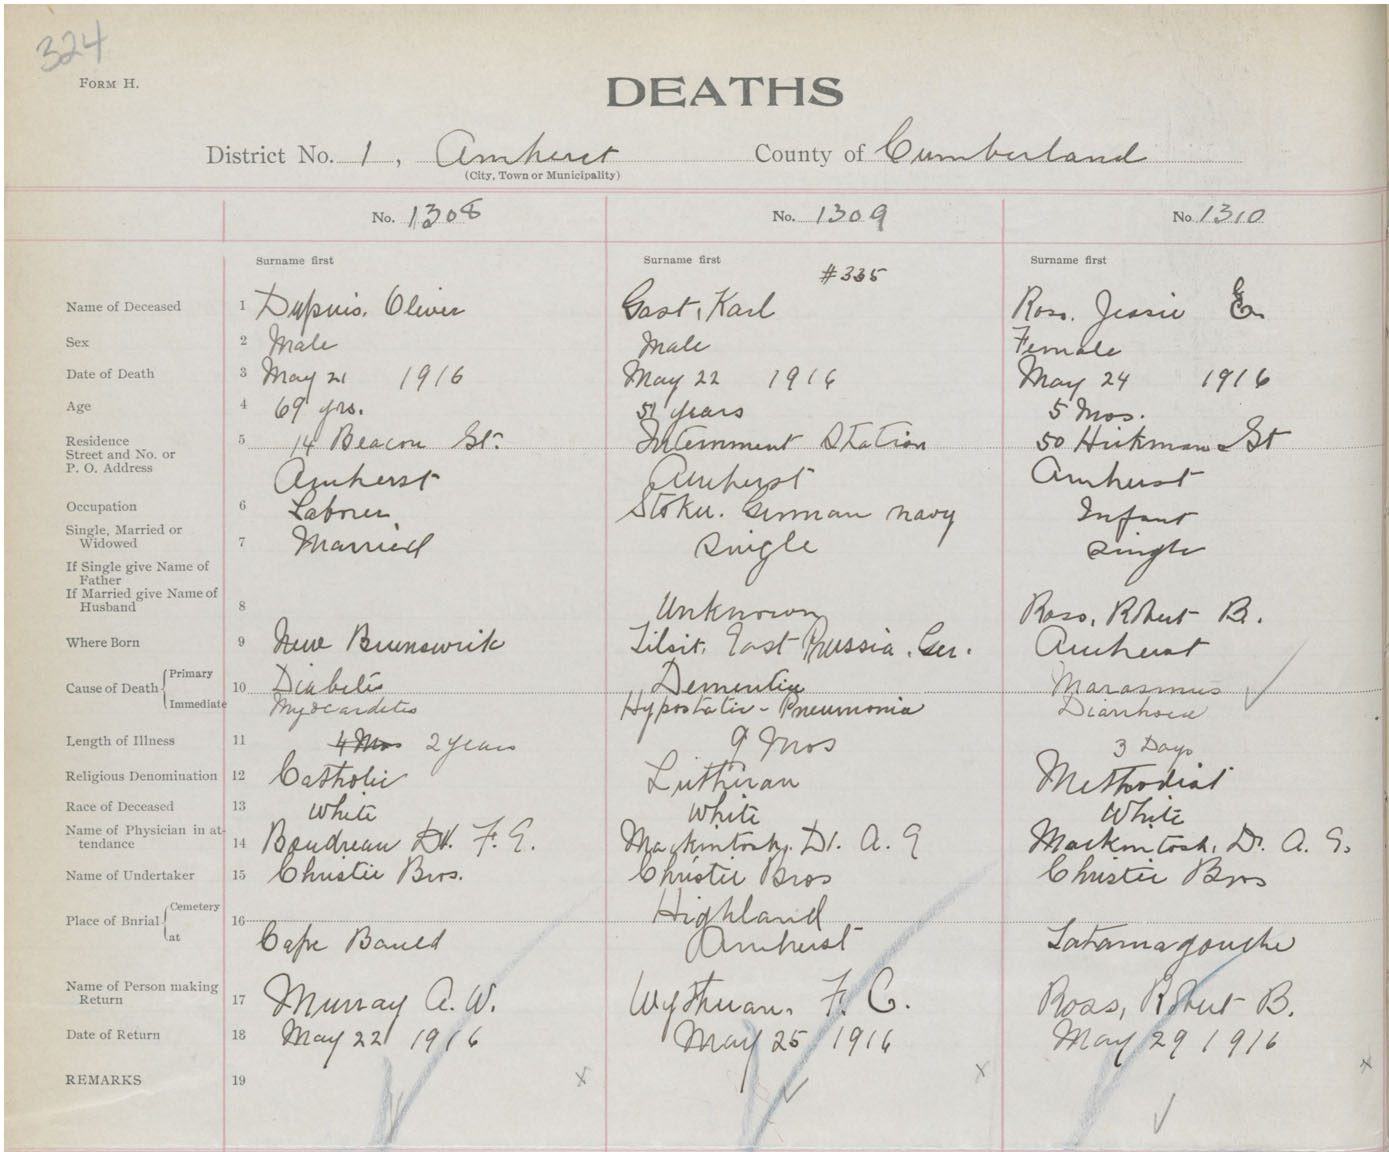 324
FORM H.
DEATHS
District No. 1, Amherst County of Cumberland
(City, Town or Municipality)
No. 1308 No. 1309 No. 1310
Surname first Surname first Surname first
#335
Name of Deceased 1 Dupuis, Oliver Gast, Karl Ross, Jessie E.
Sex 2 Male Male Female
Date of Death 3 May 21 1916 May 22 1916 May 24 1916
Age 4 69 yrs. 51 years 5 Mos.
Residence 5 14 Beacon St. Internment Station 50 Hickman St
Street and No. or
P. O. Address Amherst Amherst Amherst
Occupation 6 Laborer Stoker. German navy Infant
Single, Married or
Widowed 7 Married Single Single
If Single give Name of
Father
If Married give Name of
Husband 8 Unknown Ross, Robert B.
Where Born 9 New Brunswick Tilsit, East Prussia, Ger. Amherst
Cause of Death Primary 10 Diabetis Dementia Marasmus
Immediate Myocarditis Hypostatic-Pneumonia Diarrhoea
Length of Illness 11 4 Mos 2 years 9 Mos 3 Days
Religious Denomination 12 Catholic Lutheran Methodist
Race of Deceased 13 White White White
Name of Physician in at-
tendance 14 Boudreau Dr. F. E. Mackintosh, Dr. A. E Mackintosh, Dr. A. E.
Name of Undertaker 15 Christie Bros. Christie Bros Christie Bros
Place of Bnrial Cemetery 16 Highland
at Cape Bauld Amherst Tatamagouche
Name of Person making
Return 17 Murray A. W. F. C. Ross, Robert B.
Date of Return 18 May 22 1916 May 25 1916 May 29 1916
REMARKS 19 x x x